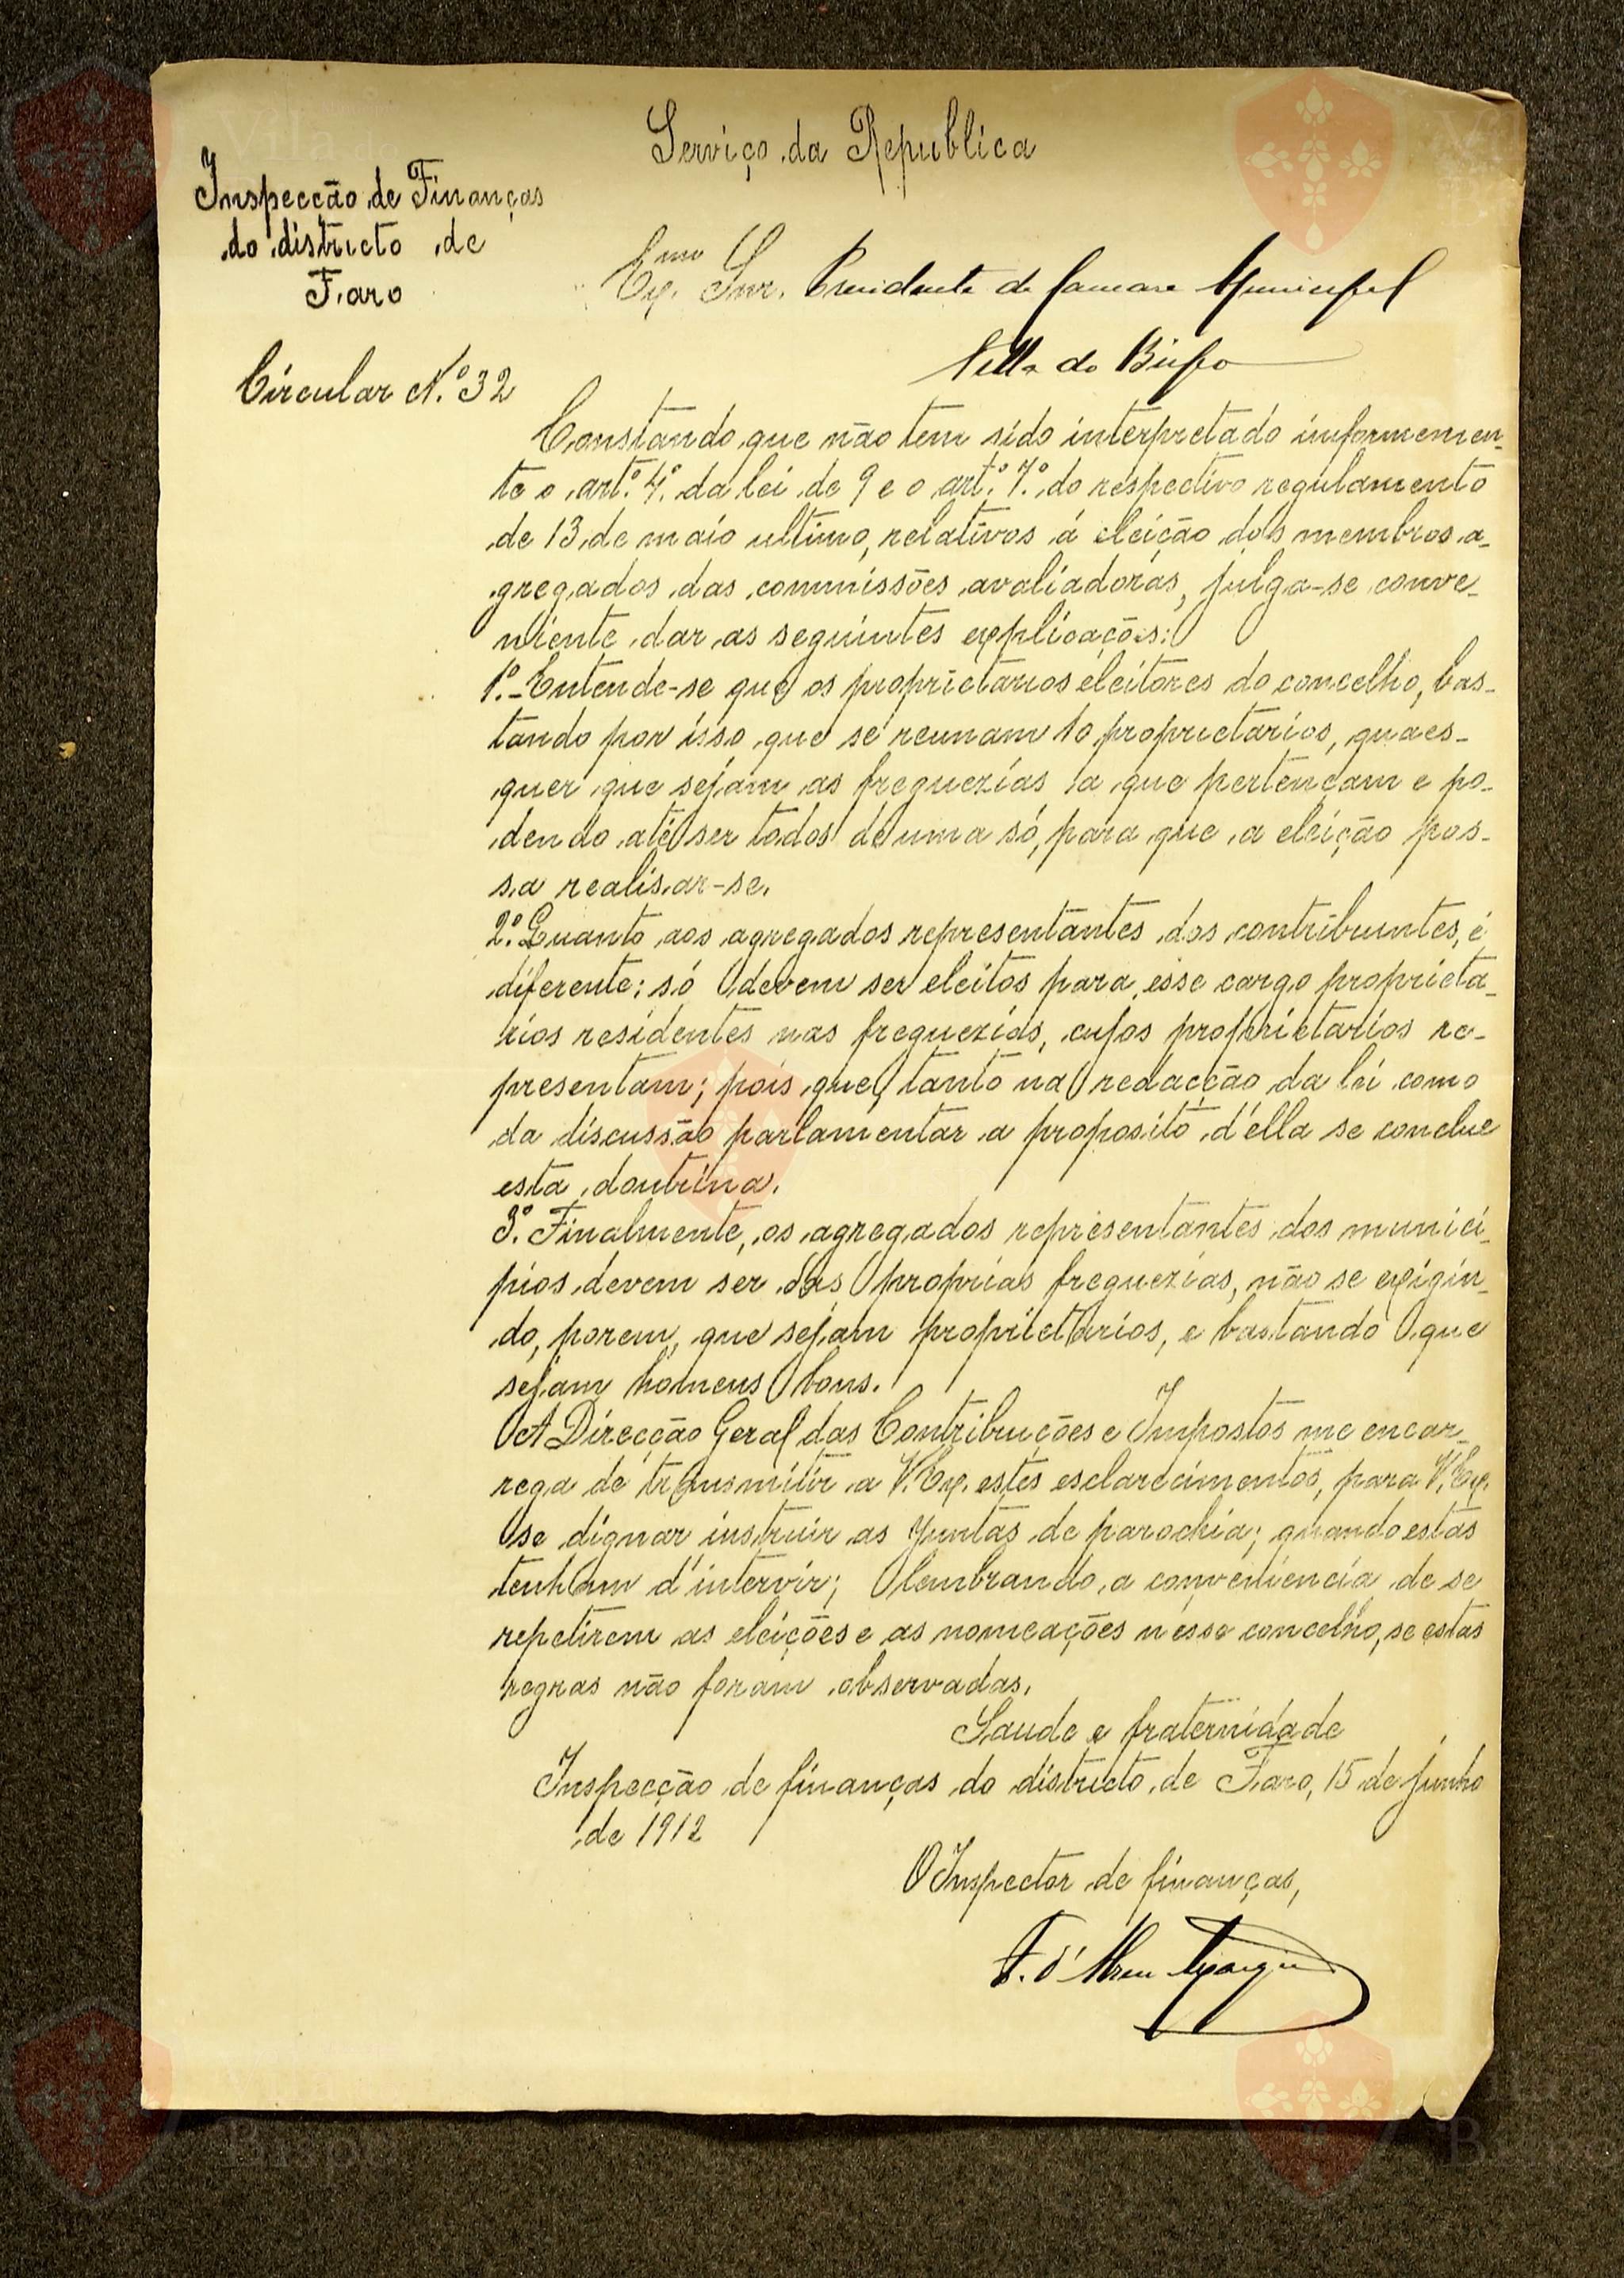 Serviço da Republica
Inspecção de Finanças
do districto de
Faro
Exmo Snr. Presidente da Camara Municipal
Villa do Bispo
Circular N.º 32
Constando que não tem sido interpretado iuformemen-
te o art.º 4.º da lei de 9 e o art.º 7.º do respectivo regulamento
de 13 de maio ultimo, relativos á eleição dos membros a-
gregados das commissões avaliadoras, julga-se conve-
niente dar as seguintes explicações:
1.º - Entende-se que os proprietarios eleitores do concelho, bas-
tando por isso que se reunam 10 proprietarios, quaes-
quer que sejam as freguezias a que pertençam e po-
dendo até ser todos de uma só, para que a eleição pos-
sa realisar-se.
2.º Quanto aos agregados representantes dos contribuintes, é
diferente: só devem ser eleitos para esse cargo proprieta-
rios residentes nas freguezias, cujos proprietarios re-
presentam; pois que, tanto na redacção da lei como
da discussão parlamentar a proposito d'ella se conclue
esta doutrina.
3.º Finalmente, os agregados representantes dos munici-
pios devem ser das proprias freguezias, não se exigin-
do, porem, que sejam proprietarios, e bastando que
sejam homens bons.
A Direcção Geral das Contribuções e Impostos me encar-
rega de transmitir a V. Ex. estes esclarecimentos, para V. Ex.
se dignar instruir as juntas de parochia; quando estas
tenham d'intervir; lembrando a conveniencia de se
repetirem as eleições e as nomeações n'esse concelho, se estas
regras não foram observadas.
Saude e fraternidade
Inspecção de finanças do districto de Faro, 15 de junho
de 1912
O Inspector de finanças,
F. d'Abreu
Bispo